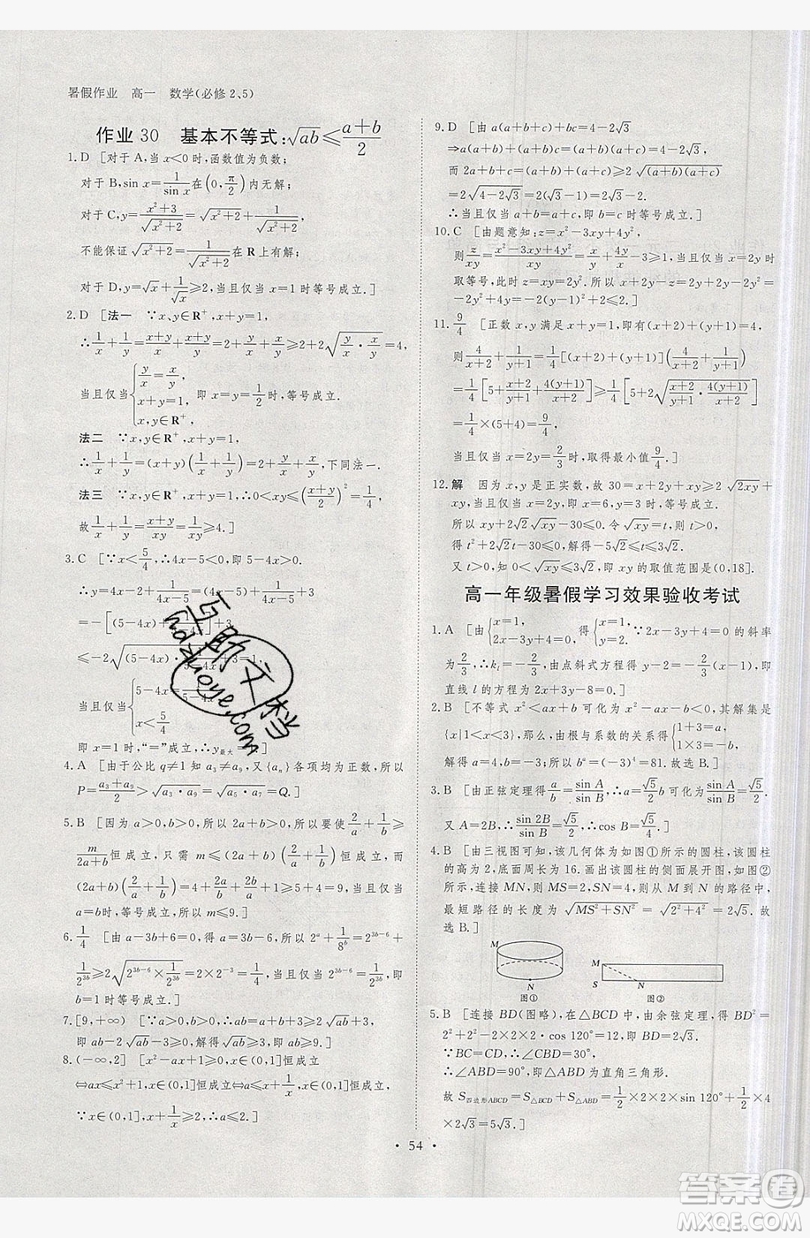 暑假作业 高一 数学(必修2、5)
作业 30 基本不等式:√ab≤(a+b)/2
1.D [对于A,当x<0时,函数值为负数;
对于B,sin x=1/sin x在(0,π/2)内无解;
对于C,y=(x²+3)/√(x²+2)=√(x²+2)+1/√(x²+2),
不能保证√(x²+2)=1/√(x²+2)在R上有解;
对于D,y=√x+1/√x≥2,当且仅当x=1时,等号成立.]
2.D [法一 ∵x、y∈R⁺,且x+y=1,
∴1/x+1/y=(x+y)/x+(x+y)/y=2+y/x+x/y≥2+2√(y/x·x/y)=4,
当且仅当{y/x=x/y, x+y=1, x,y∈R⁺, 即x=y=1/2时,等号成立.
法二 ∵x,y∈R⁺,x+y=1,
∴1/x+1/y=(x+y)(1/x+1/y)=2+y/x+x/y,下同法一.
法三 ∵x,y∈R⁺,x+y=1,∴0<xy≤((x+y)/2)²=1/4,
故1/x+1/y=1/xy≥4.]
3.C [∵x<5/4,∴4x-5<0,即5-4x>0.
当且仅当
即x=1时,“=”成立,∴y最大
4.A [由于公比q≠1知a₃≠a₉,又{aₙ}各项均为正数,所以
P=(a₃+a₉)/2>√(a₃·a₉)=√(a₅·a₇)=Q.]
5.B [因为a>0,b>0,所以2a+b>0,所以要使2/a+1/b≥
m/(2a+b)恒成立,只需(2a+b)(2/a+1/b)≥m恒成立,而
(2a+b)(2/a+1/b)=4+2a/b+2b/a+1≥5+4=9,当且仅当
a=b时,等号成立,所以m≤9.]
6.1/4 [由a-3b+6=0,得a=3b-6,所以2ᵃ+1/8ᵇ=2³ᵇ⁻⁶
+1/2³ᵇ≥2√(2³ᵇ⁻⁶×1/2³ᵇ)=1/4,当且仅当2³ᵇ⁻⁶=1/2³ᵇ,
即b=1时等号成立.]
7.[9,+∞) [∵a>0,b>0,∴ab=a+b+3≥2√ab+3,
8.(-∞,2] [x²-ax+1≥0,x∈(0,1]恒成立
⇔ax≤x²+1,x∈(0,1]恒成立⇔a≤x+1/x,x∈(0,1]恒成立.
∵x∈(0,1],x+1/x≥2,∴a≤2.]
9.D [由a(a+b+c)+bc=4-2√3,
得(a+c)(a+b)=4-2√3.∵a、b、c>0.
而2a+b+c=(a+b)+(a+c)≥2√((a+b)(a+c))
=2√(4-2√3)=2(√3-1)=2√3-2.
∴当且仅当a+b=a+c,即b=c时等号成立.]
10.C [由题意知:z=x²-3xy+4y²,
则z/xy=(x²-3xy+4y²)/xy=x/y+4y/x-3≥1,当且仅当x=2y时
取等号,此时z=xy=2y².
11.9/4 [正数x,y满足x+y=1,即有(x+2)+(y+1)=4,
则
≥1/4×(5+4)=9/4,
当且仅当x=2y=2/3时,取得最小值9/4.]
12.解 因为x,y是正实数,故30=x+2y+xy≥2√(2xy)+
xy,当且仅当x=2y,即x=6,y=3时,等号成立.
所以xy+2√2√xy-30≤0.令√xy=t,则t>0,
得t²+2√2t-30≤0,解得-5√2≤t≤3√2.
又t>0,知0<√xy≤3√2,即xy的取值范围是(0,18].
高一年级暑假学习效果验收考试
1.A [由{x=1, 2x-3y-4=0,得{x=1, y=-2/3.∵2x-3y+9=0的斜率
为2/3,∴kₗ=-2/3.∵由点斜式方程可知y+2/3=2/3(x-1),即
直线l的方程为2x-3y-8=0.]
2.B [不等式x²<ax-b可化为x²-ax+b<0,其解集是
{x|1<x<3},那么,由根与系数的关系得{1+3=a, 1×3=b,
3.D [由正弦定理得a/b=sin A/sin B,∴a/b=√5/2可化为sin A/sin B=√5/2
又A=2B,∴sin 2B/sin B=√5/2,∴cos B=√5/4.]
4.B [由三视图可知,该几何体为如图①所示的圆柱,该圆柱
的高为2,底面周长为16.画出该圆柱的侧面展开图,如图②
所示,连接MN,则MS=2,SN=4,则从M到N的路径中,
最短路径的长度为√(MS²+SN²)=√(2²+4²)=2√5.故
选B.]
M
N
图①
M
S
N
图②
5.B [连接BD(图略),在△ABD中,由余弦定理得BD²=
2²+2²-2×2×2·cos 120°=12,即BD=2√3.
∵BC⊥CD,
∴∠ABD=30°,∴△ABD为直角三角形.
故S四边形ABCD=S△ABD+S△BCD=1/2×2×2×sin 120°+1/2×4
×2√3=5√3.]
互助文档
hdzuoye.com
• 54 •
答案圈
MXQE.COM